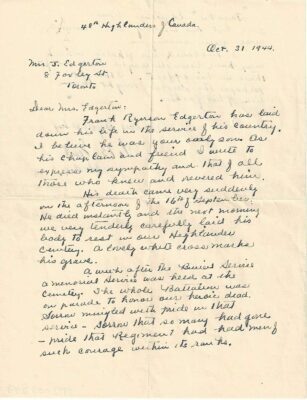 48th Highlanders of Canada.
Oct. 31 1944.
Mrs J. Edgerton
8 Foxley St.
Toronto
Dear Mrs. Edgerton:
Frank Ryerson Edgerton has laid
down his life in the service of his country.
I believe he was your only son. As
his Chaplain and friend I write to
express my sympathy and that of all
those who knew and revered him.
His death came very suddenly
on the afternoon of the 16th of September.
He died instantly and the next morning
we very tenderly carefully laid his
body to rest in our Highlander
Cemetery. A lovely white cross marks
his grave.
A week after the Burial Service
a memorial Service was held at the
Cemetery. The whole Battalion was
on parade to honor our heroic dead.
Sorrow mingled with pride in that
service - Sorrow that so many had gone
- pride that Regiment had had men of
such courage within its ranks.